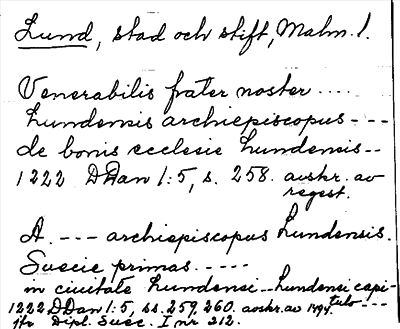 Lund, stad och stift, Malm. l.
Venerabilis frater noster ....
Lundensis archiepiscopus - - -
de bonis ecclesie Lundensis - -
1222 DDan 1:5, s. 258. avskr. av
regest.
A. - - - archiepiscopus Lundensis.
Suecie primas. - - - -
in ciuitate Lundensi - - Lundensi capi-
tulo - - -
1222 DDan 1:5, ss. 259, 260. avskr. av 1494.
jfr Dipl. Suec. I nr 212.